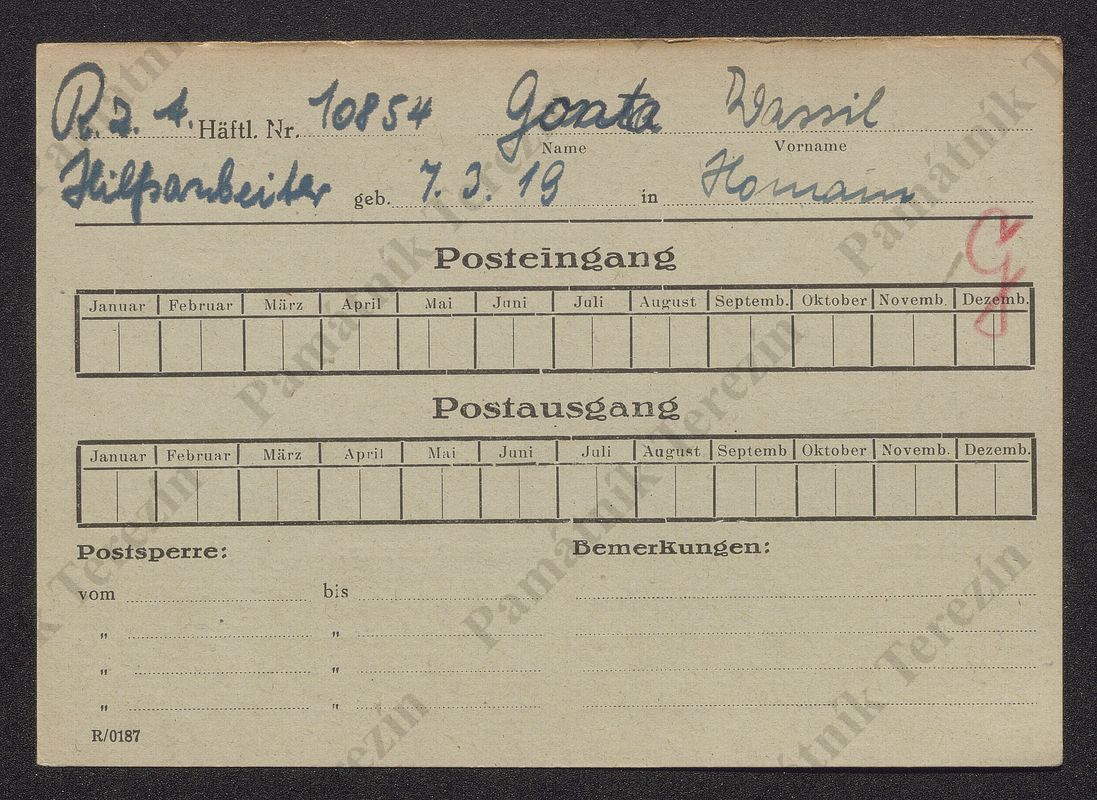 R. Z. A. Häftl. Nr. 10854 Gonta Wassil
Name Vorname
Hilfsarbeiter geb. 7. 3. 19 in Homann
G
Posteingang
Januar Februar März April Mai Juni Juli August Septemb. Oktober Novemb. Dezemb.
Postausgang
Januar Februar März April Mai Juni Juli August Septemb Oktober Novemb. Dezemb.
Postsperre: Bemerkungen:
vom bis
" "
" "
" "
R/0187
Památník Terezín